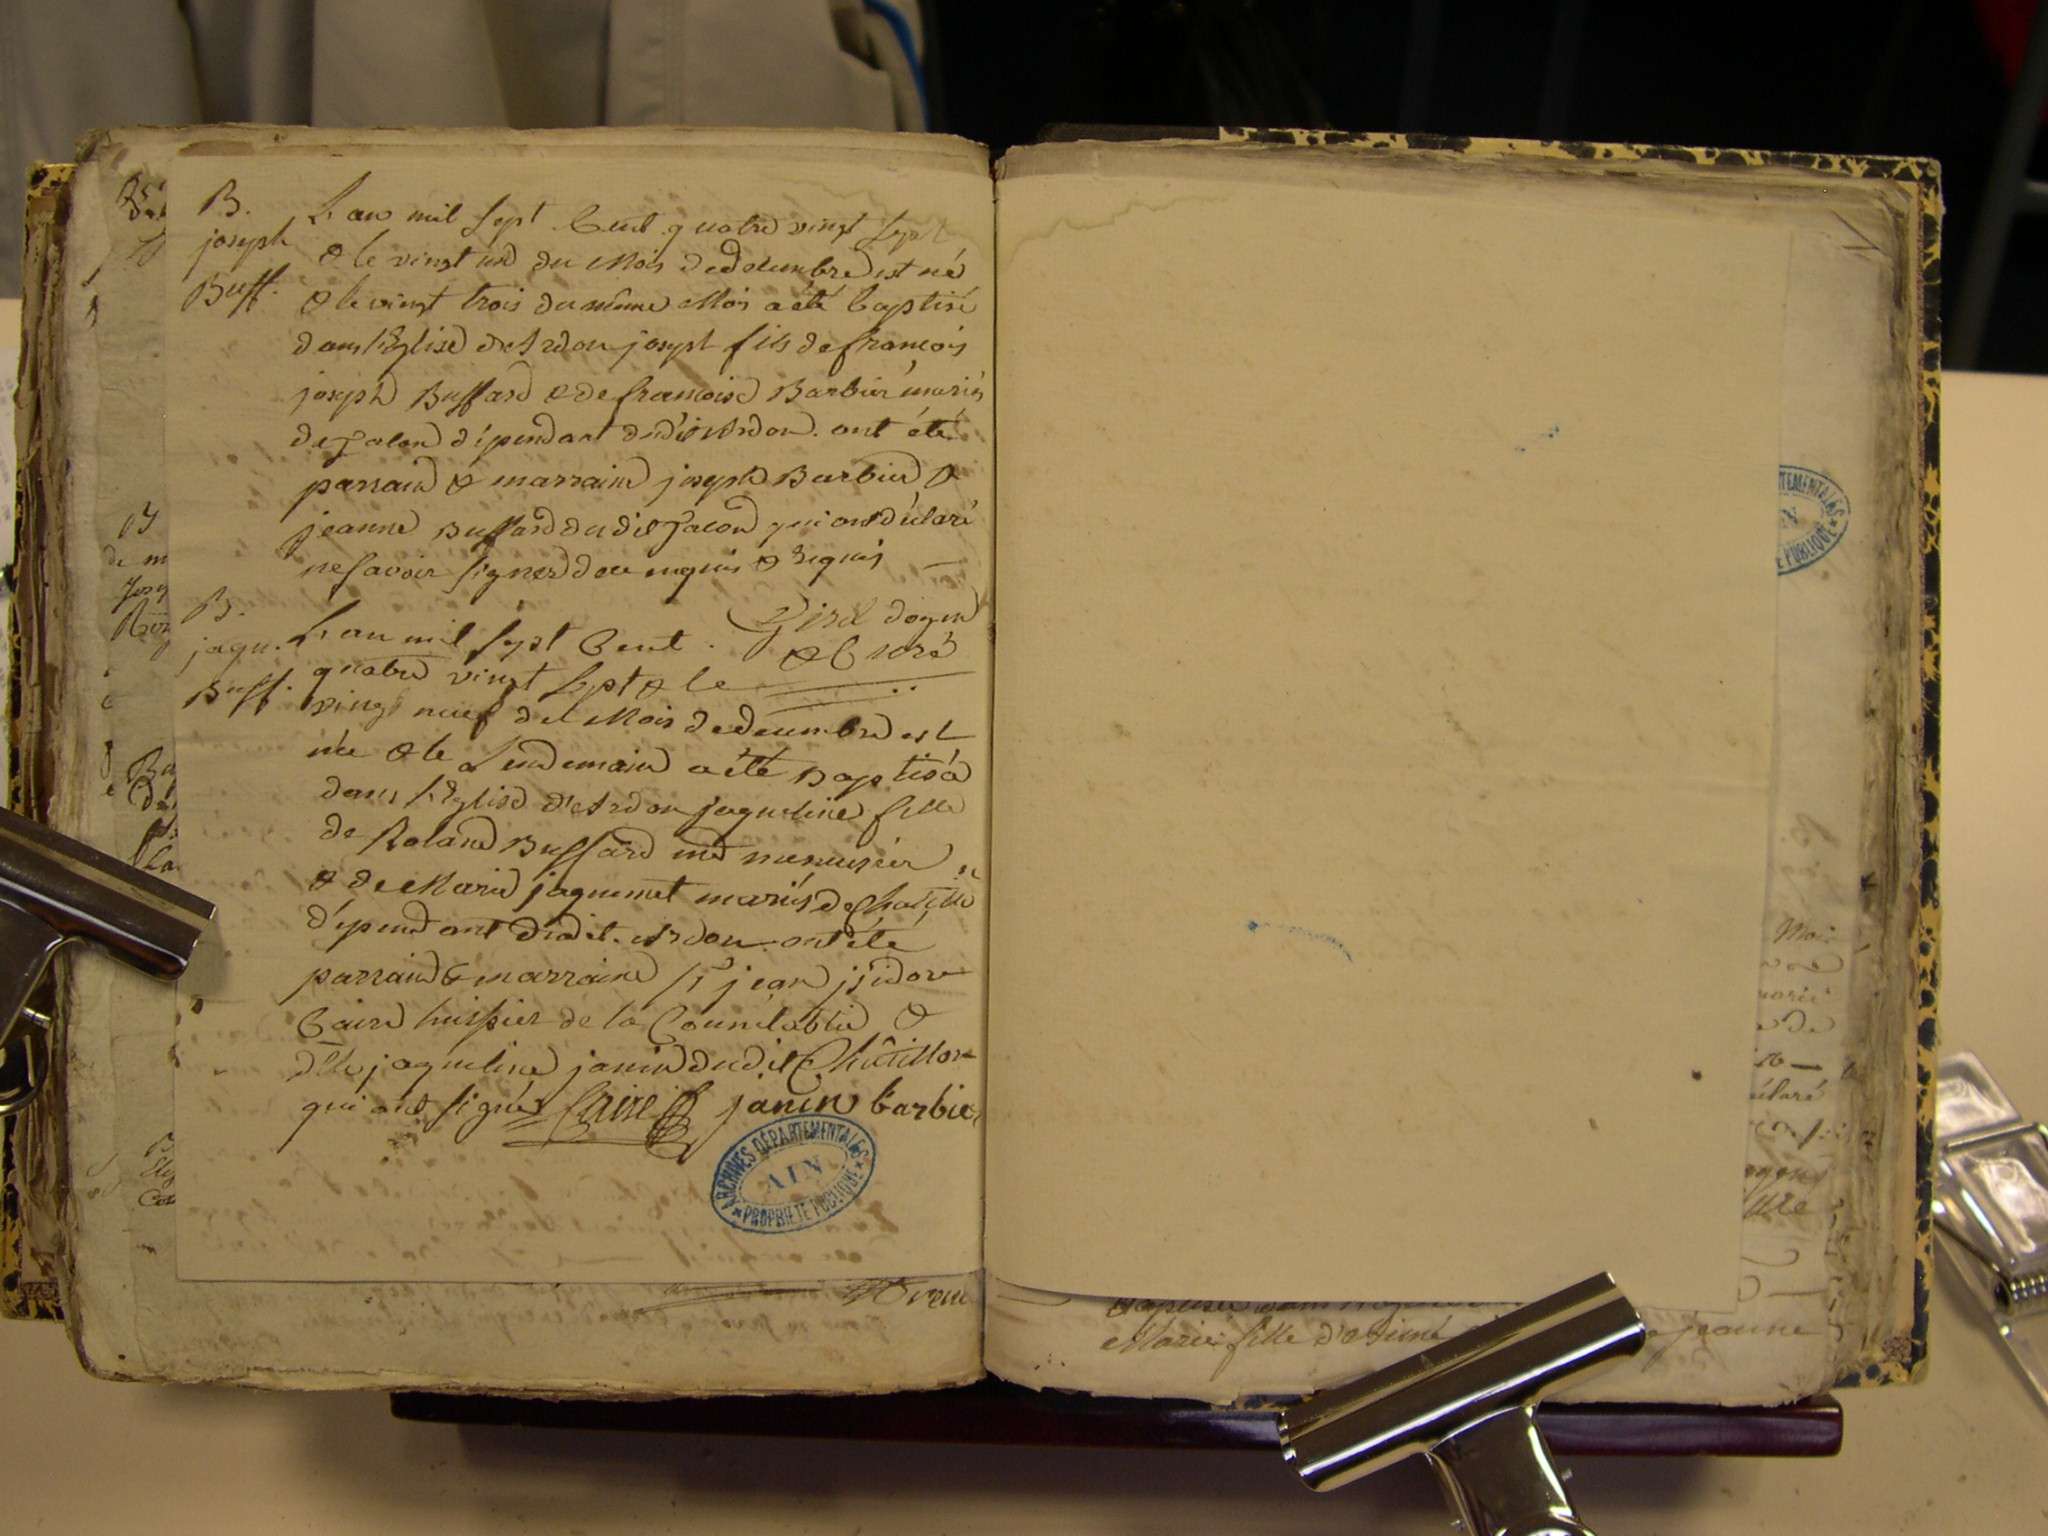 B.
joseph
Buff.
L'an mil sept Cent quatre vingt sept
& le vingt un du Mois de decembre est né
& le vingt trois du même Mois a été baptisé
dans l'Eglise d'Ardon joseph fils de francois
joseph Buffard & de francoise Barbier mariés
de dépendant dudit Ardon. ont été
parrain & marraine joseph Barbier &
jeanne Buffard dudit qui ont déclaré
ne savoir signer de ce enquis & requis
Girod doyen
& Curé
B.
jaqu.
Buff.
L'an mil sept Cent
quatre vingt sept & le
vingt neuf du Mois de decembre est
née & le Lendemain a été Baptisée
dans l'Eglise d'Ardon jaqueline fille
de Roland Buffard md menuisier
& de Marie jaquemet mariés de Chatillon
dépendant dudit Ardon ont été
parrain & marraine Sr jean jsidore
Caire huissier de la Connétablie &
dlle jaqueline janin dudit Châtillon
qui ont signés Caire janin barbier
ARCHIVES DÉPARTEMENTALES
AIN
PROPRIETE PUBLIQUE
Marie fille d'Aimé jeanne